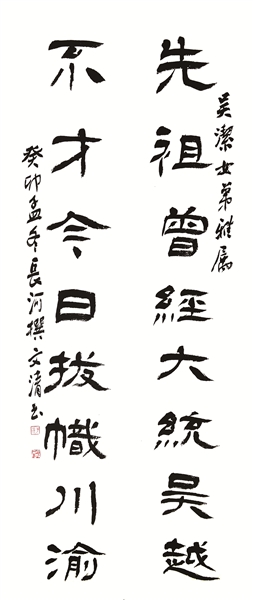 吴潔女弟雅属
先祖曾經大統吴越
不才今日拔幟川渝
癸卯孟冬長河撰文清书